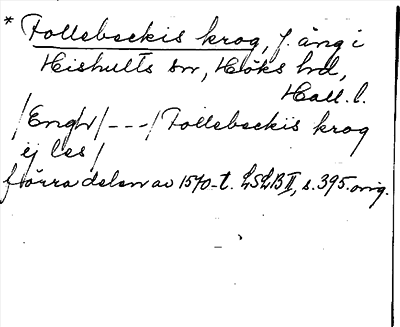 * Follebeckis krog, f. äng i
Hishults sn, Höks hd,
Hall. l.
/Engh/---/Follebeckis krog
ej les/
förra delen av 1570-t. LSLB II, s. 395. orig.